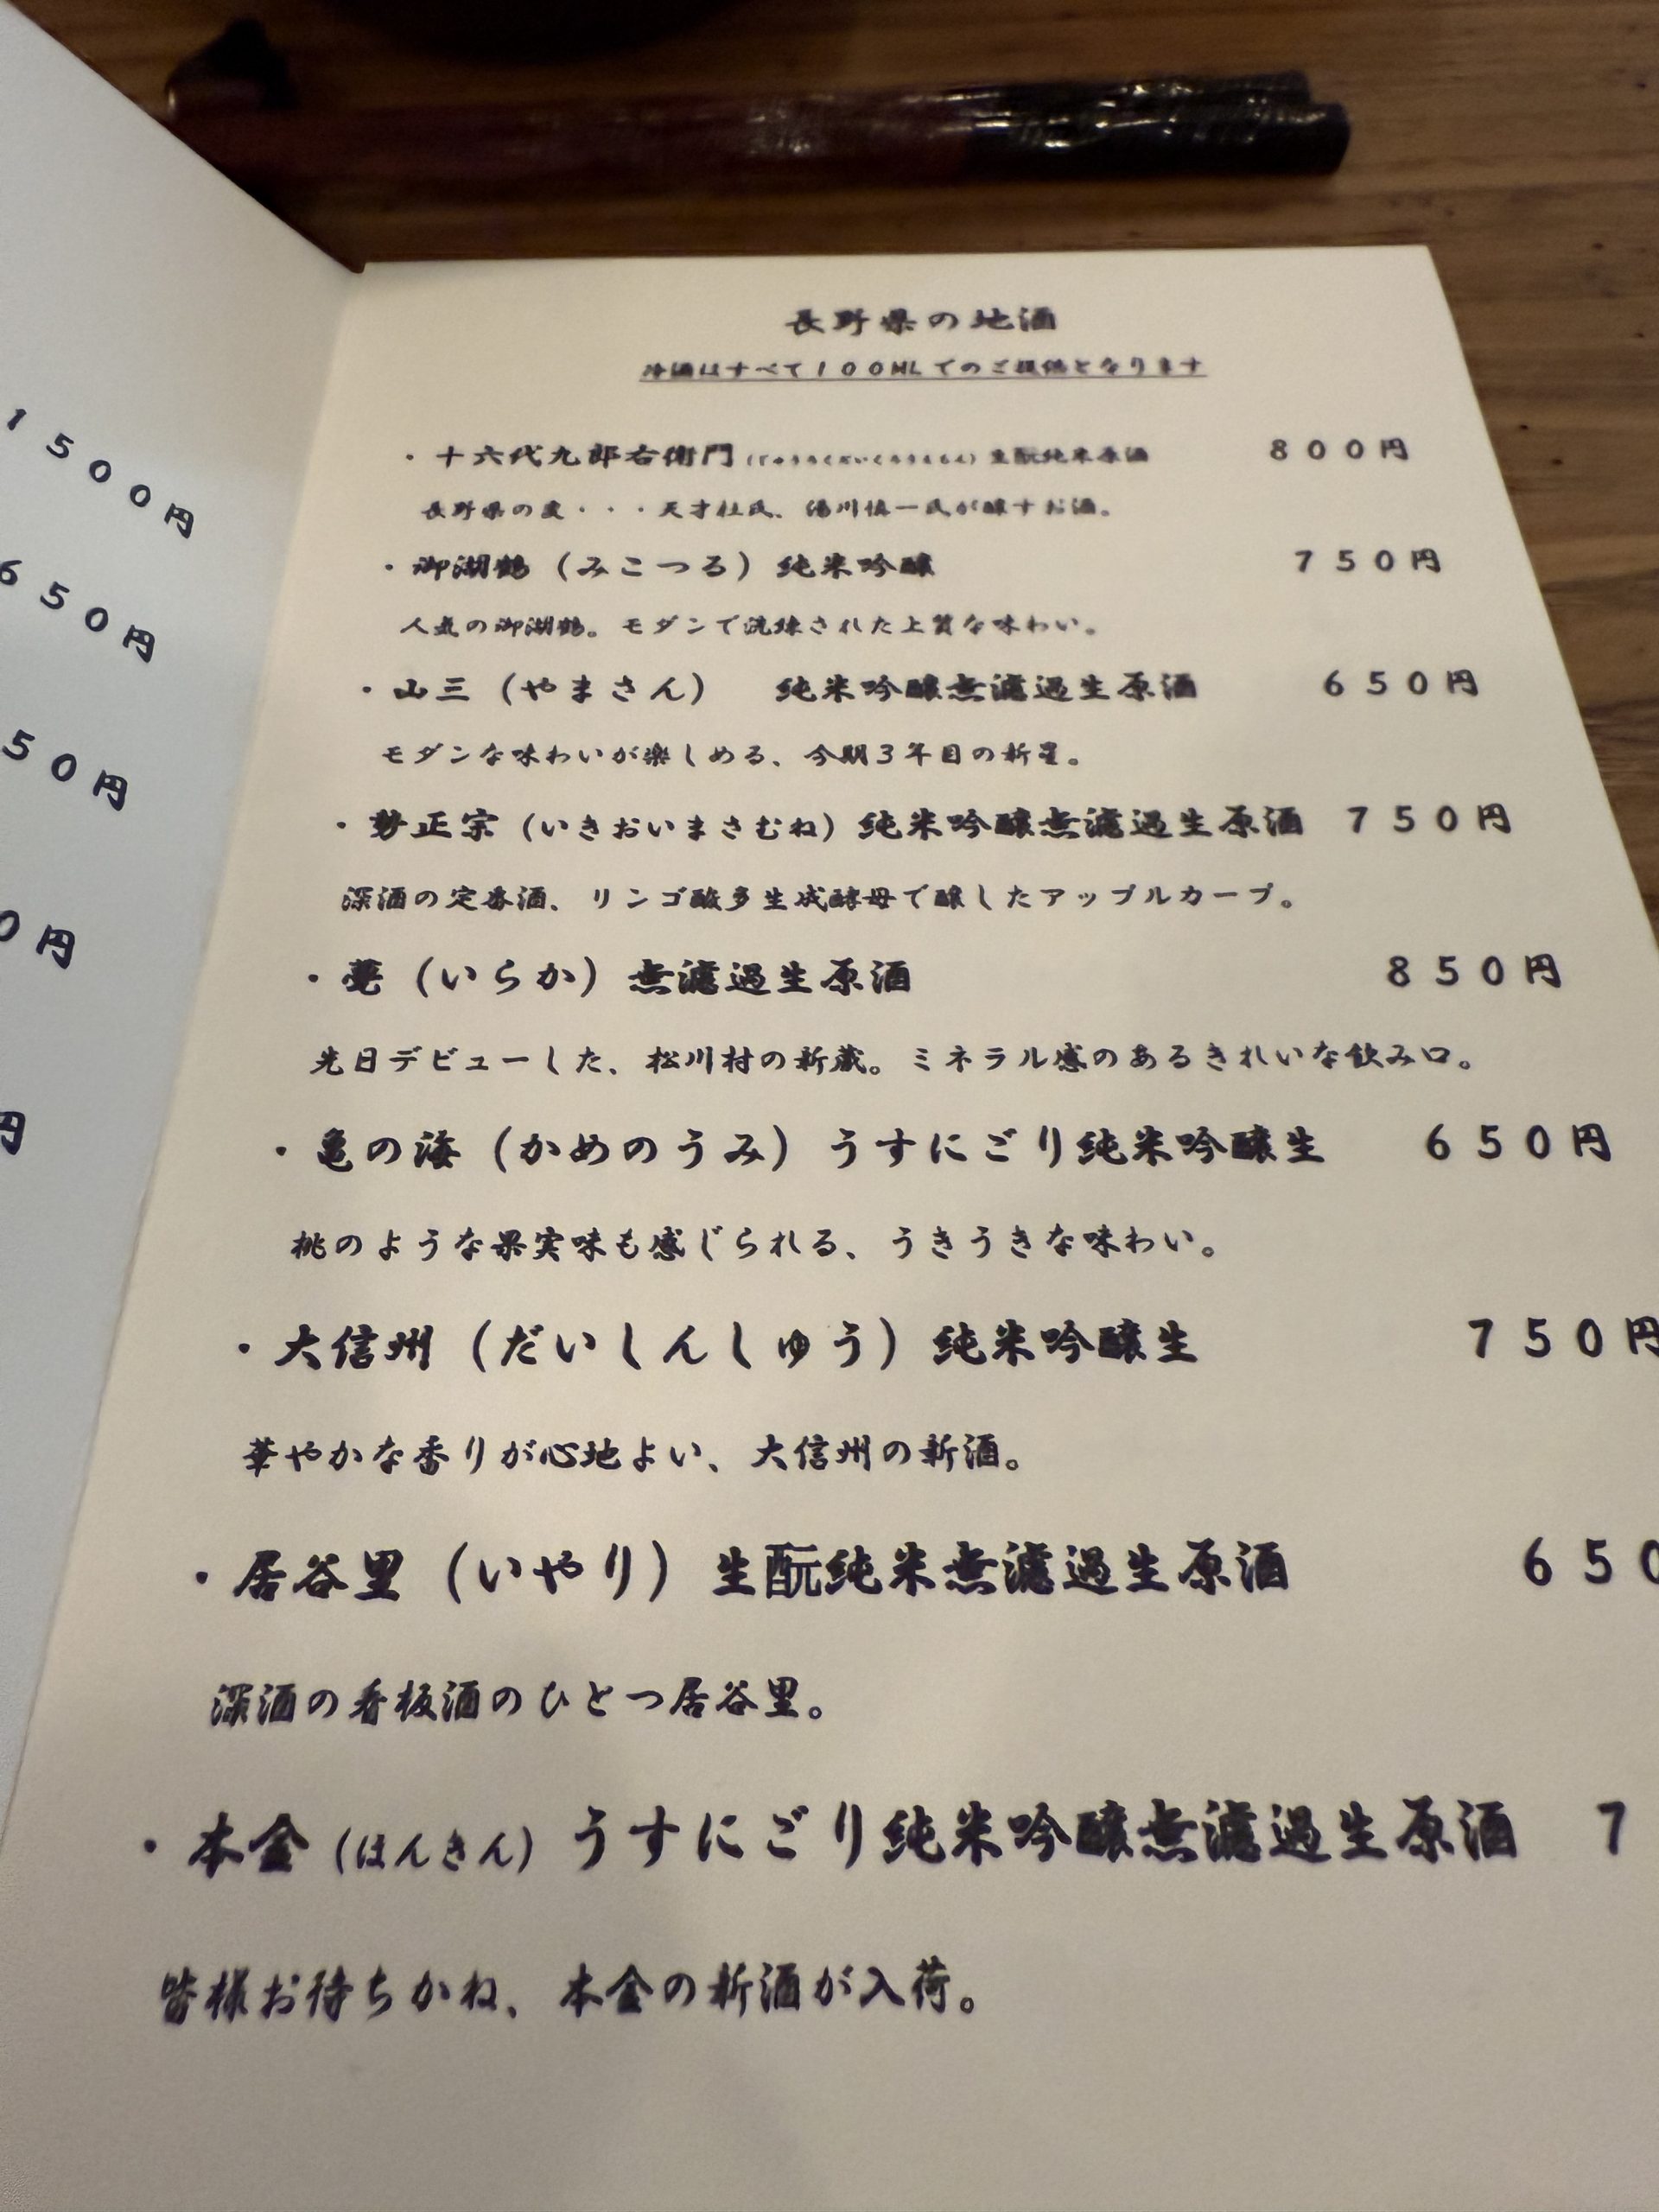 1500円
650円
50円
0円
円
長野県の地酒
冷酒はすべて100MLでのご提供となります
・十六代九郎右衛門(じゅうろくだいくろうえもん)生酛純米原酒 800円
長野県の変・・・天才杜氏、湯川慎一氏が醸すお酒。
・御湖鶴(みこつる)純米吟醸 750円
人気の御湖鶴。モダンで洗練された上質な味わい。
・山三(やまさん) 純米吟醸無濾過生原酒 650円
モダンな味わいが楽しめる、今期3年目の新星。
・勢正宗(いきおいまさむね)純米吟醸無濾過生原酒 750円
深酒の定番酒、リンゴ酸多生成酵母で醸したアップルカーブ。
・甍(いらか)無濾過生原酒 850円
先日デビューした、松川村の新蔵。ミネラル感のあるきれいな飲み口。
・亀の海(かめのうみ)うすにごり純米吟醸生 650円
桃のような果実味も感じられる、うきうきな味わい。
・大信州(だいしんしゅう)純米吟醸生 750円
華やかな香りが心地よい、大信州の新酒。
・居谷里(いやり)生酛純米無濾過生原酒 650
深酒の看板酒のひとつ居谷里。
・本金(ほんきん)うすにごり純米吟醸無濾過生原酒 7
皆様お待ちかね、本金の新酒が入荷。